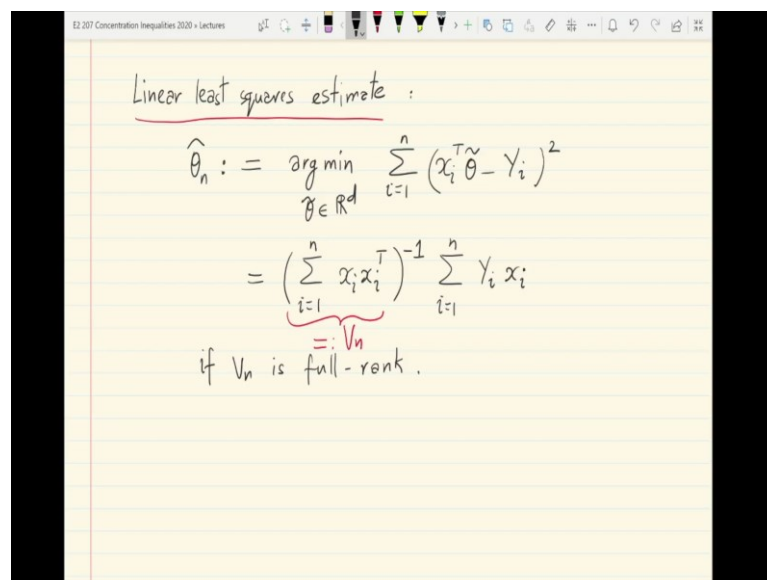 E2 207 Concentration Inequalities 2020 » Lectures
Linear least squares estimate :
θ̂ₙ := arg min_{θ̃ ∈ ℝᵈ} ∑_{i=1}^{n} (xᵢᵀθ̃ − Yᵢ)²
= (∑_{i=1}^{n} xᵢxᵢᵀ)⁻¹ ∑_{i=1}^{n} Yᵢ xᵢ
=: Vₙ
if Vₙ is full-rank.